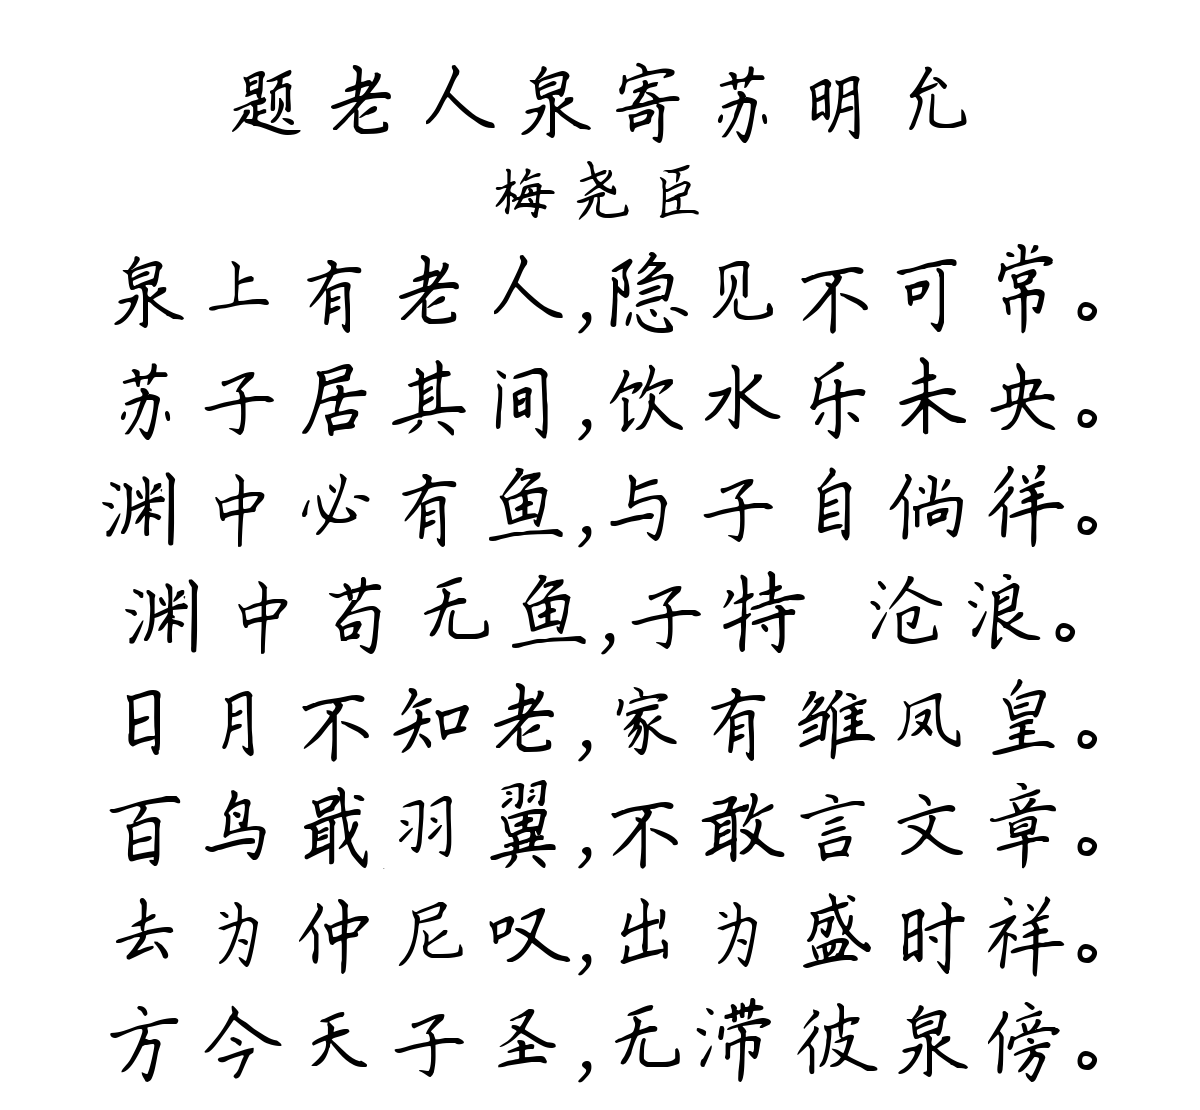 题老人泉寄苏明允
梅尧臣
泉上有老人,隐见不可常。
苏子居其间,饮水乐未央。
渊中必有鱼,与子自倘徉。
渊中苟无鱼,子特 沧浪。
日月不知老,家有雏凤皇。
百鸟戢羽翼,不敢言文章。
去为仲尼叹,出为盛时祥。
方今天子圣,无滞彼泉傍。